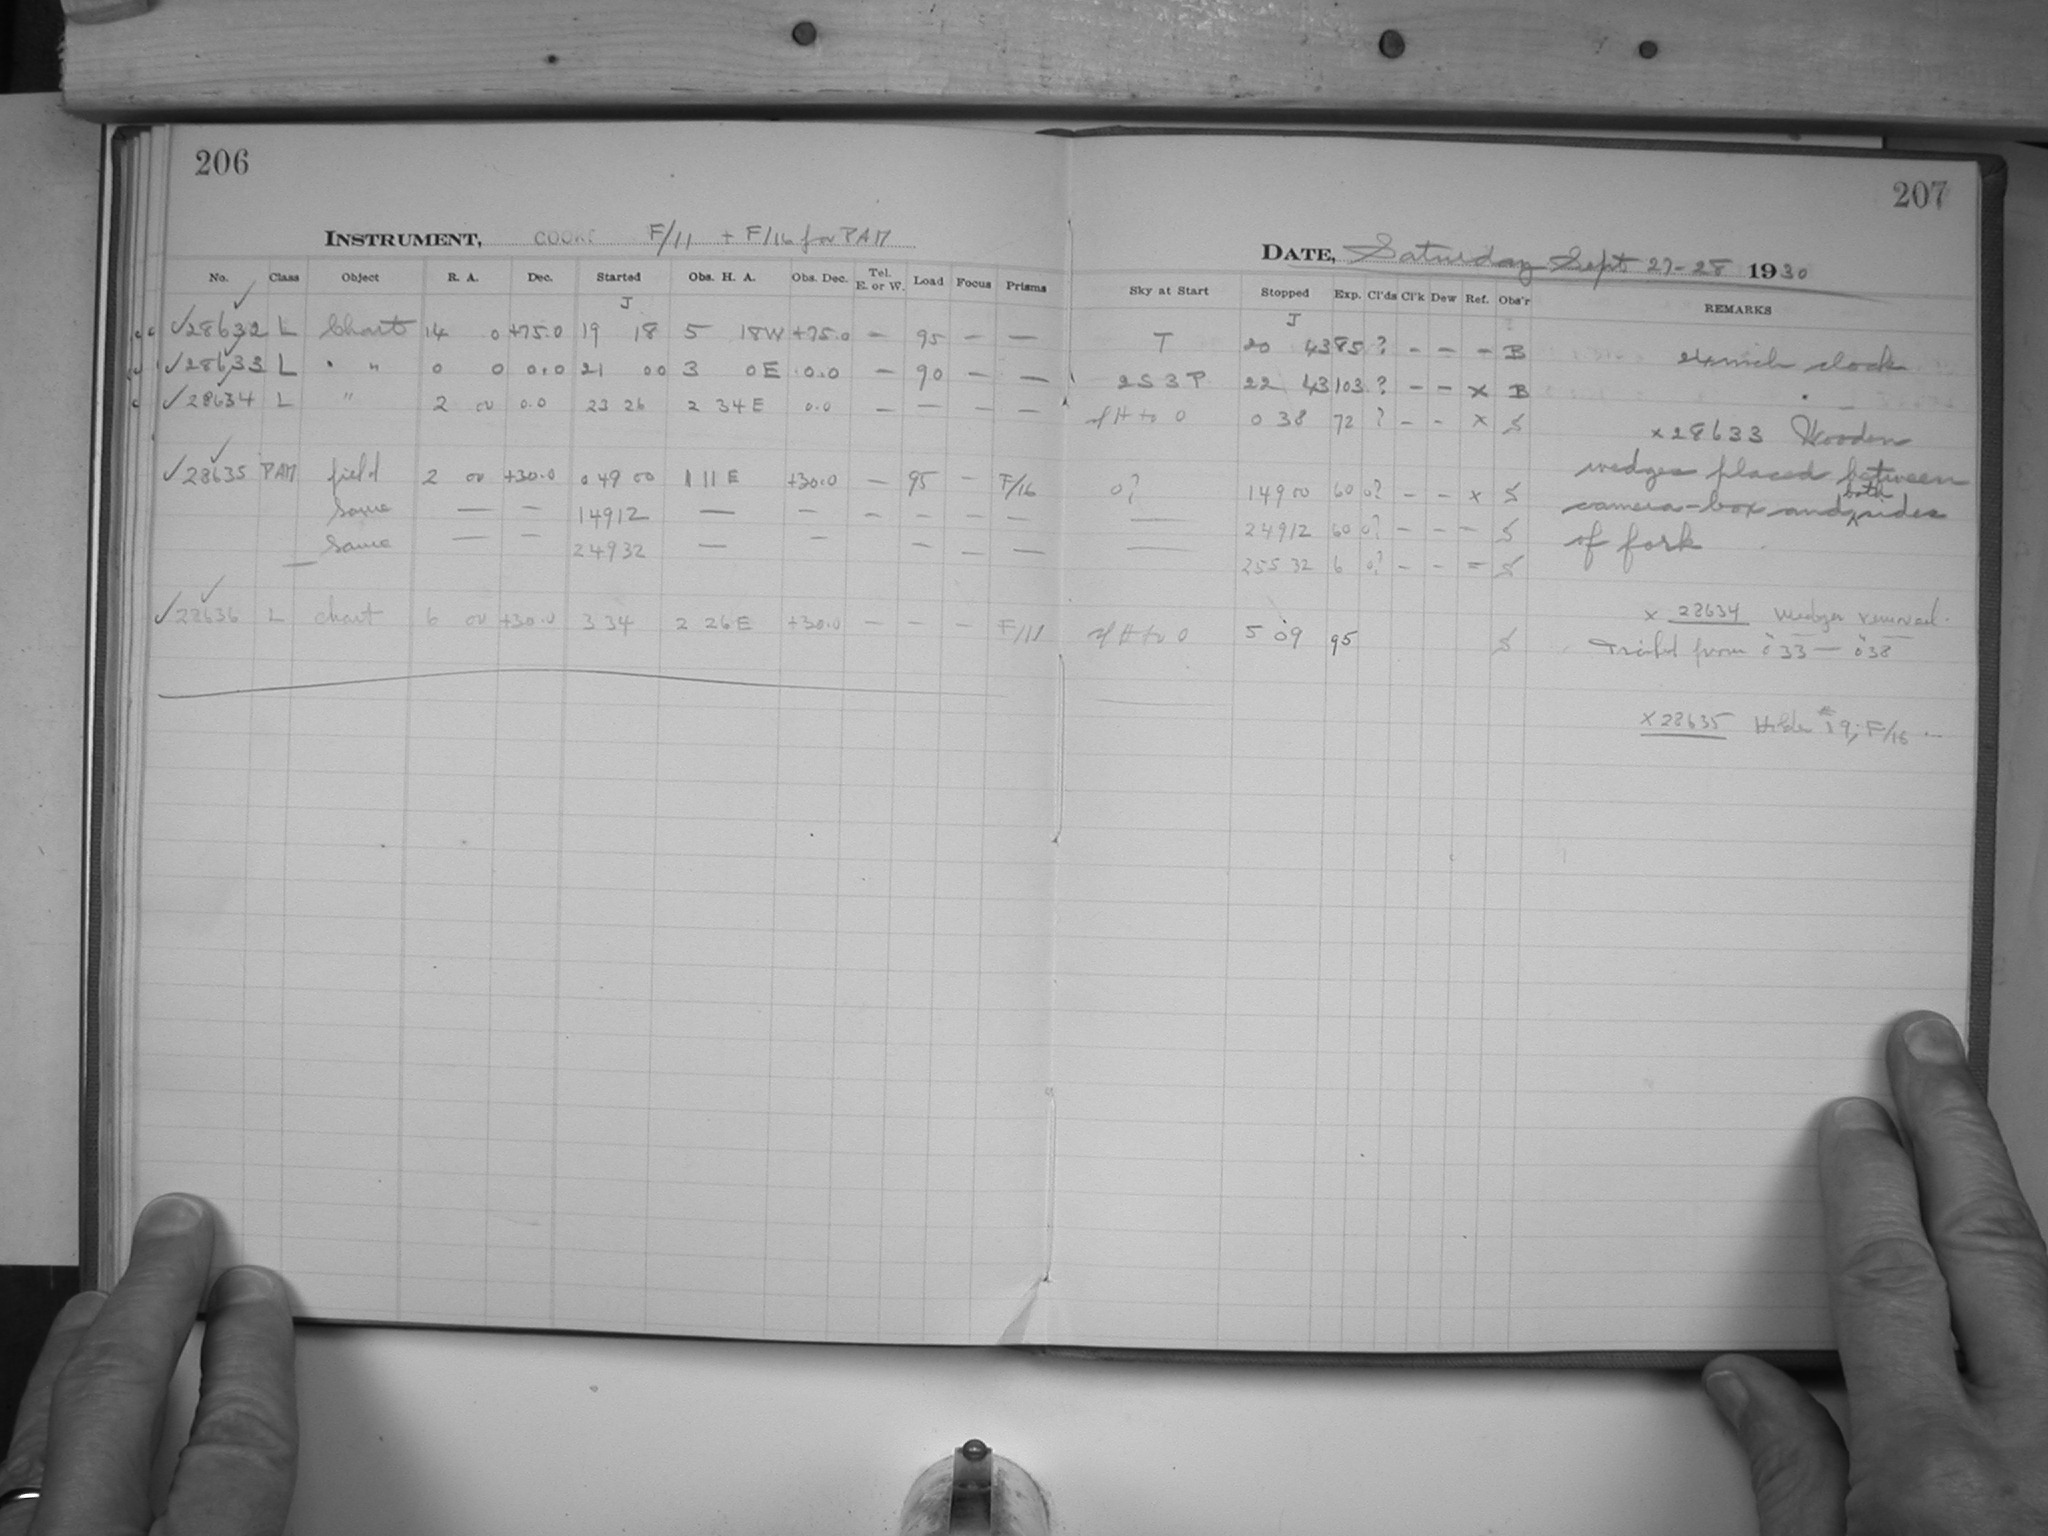 206
INSTRUMENT, COOKE F/11 + F/16 for PAM
No. Class Object R. A. Dec. Started Obs. H. A. Obs. Dec. Tel. E. or W. Load Focus Prisms
J
✓28632 L Chart 14 0 +75.0 19 18 5 18W +75.0 — 95 — —
✓28633 L " " 0 0 0.0 21 00 3 0E 0.0 — 90 — —
✓28634 L " 2 00 0.0 23 26 2 34E 0.0 — — — —
✓28635 PAM field 2 00 +30.0 0 49 00 1 11 E +30.0 — 95 — F/16
Same — — 1 49 12 — — — — — —
Same — — 2 49 32 — — — — —
✓28636 L chart 6 00 +30.0 3 34 2 26E +30.0 — — — F/11
207
DATE, Saturday Sept 27-28 1930
Sky at Start Stopped Exp. Cl'ds Cl'k Dew Ref. Obs'r REMARKS
J
T 20 43 85 ? — — — B
2S 3P 22 43 103 ? — — x B
H to 0 0 38 72 ? — — x S
0? 1 49 00 60 0? — — x S
— 2 49 12 60 0? — — — S
— 2 55 32 6 0? — — = S
H to 0 5 09 95 S
clock
x 28633 Wooden
wedges placed between
camera-box and both sides
of fork
x 28634 wedges removed.
Trailed from 0 33 — 0 38
x 28635 Holder #19, F/16